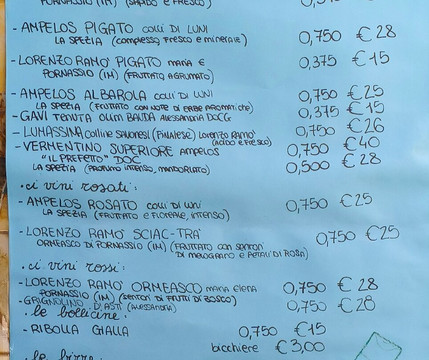 PORNASSIO (IM) (SAPIDO E FRESCO)
- AMPELOS PIGATO colli DI LUNI 0,750 €28
LA SPEZIA (complesso, FRESCO e minerale)
- LORENZO RAMO' PIGATO maria e 0,375 €15
PORNASSIO (IM) (FRUTTATO AGRUMATO)
- AMPELOS ALBAROLA colli DI LUNI 0,750 €25
LA SPEZIA (FRUTTATO CON NOTE DI ERBE AROMATICHE) 0,375 €15
- GAVI TENUTA olim BANDA ALESSANDRIA DOCG
- LUMASSINA colline SAVONESI (FINALESE) Lorenzo RAMO' 0,750 €26
(ACIDO E FRESCO)
- VERMENTINO SUPERIORE AMPELOS 0,750 €40
"IL PREFETTO" DOC 0,500 €28
LA SPEZIA (PROFUMO INTENSO, MANDORLATO)
. ci vini rosati:
- AMPELOS ROSATO colli DI LUNI 0,750 €25
LA SPEZIA (FRUTTATO E FLOREALE, INTENSO)
- LORENZO RAMO' SCIAC-TRA' 0,750 €25
ORMEASCO DI PORNASSIO (IM) (FRUTTATO con sentori
DI MELOGRANO E PETALI DI ROSA)
. ci vini rossi:
- LORENZO RAMO' ORMEASCO maria elena 0,750 €28
PORNASSIO (IM) (sentori DI FRUTTI DI BOSCO)
- GRIGNOLINO D'ASTI (ALESSANDRIA) 0,750 €28
. le bollicine:
- RIBOLLA GIALLA 0,750 €15
bicchiere €3,00
. le birre